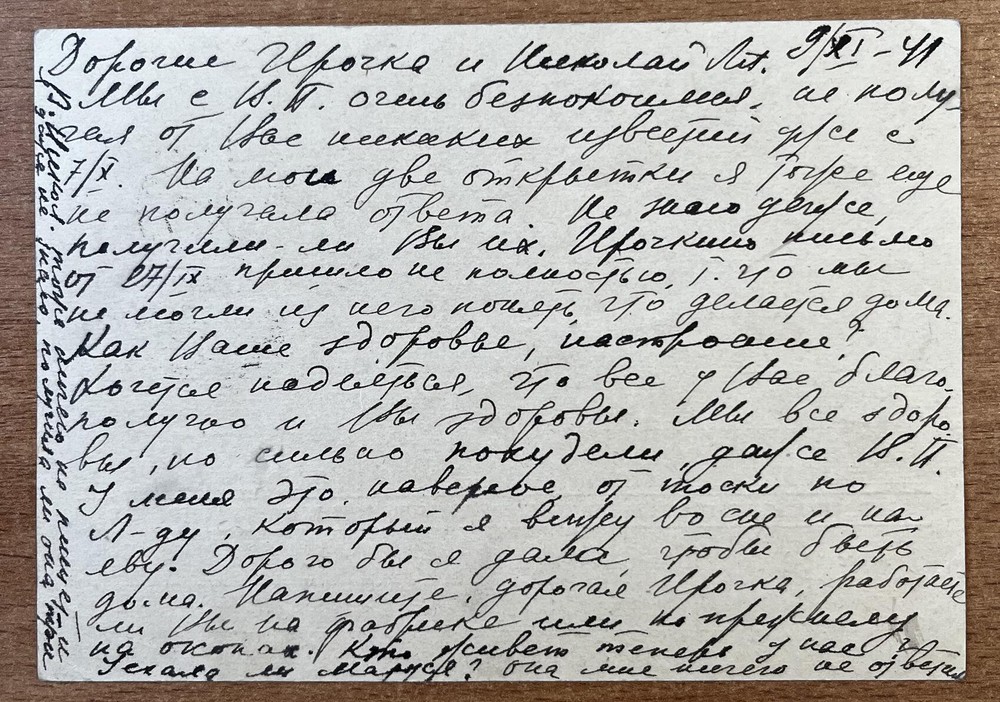 Дорогие Ирочка и Николай Ал. 9/XI-41
Мы с В. П. очень безпокоимся, не полу-
чая от Вас никаких известий уже с
7/X. На мои две открытки я тоже еще
не получала ответа. Не знаю даже,
получили-ли Вы их. Ирочкино письмо
от 27/IX пришло не полностью, т. что мы
не могли из него понять, что делается дома.
Как Ваше здоровье, настроение?
Хочется надеяться, что все у Вас благо-
получно и Вы здоровы. Мы все здоро-
вы, но сильно похудели, даже В. П.
У меня это, наверное, от тоски по
Л-ду, который я вижу во сне и на-
яву. Дорого бы я дала, чтобы быть
дома. Напишите, дорогая Ирочка, работаете
ли Вы на фабрике или по прежнему
на окопах. Кто живет теперь у нас
Уехала ли Маруся? она мне ничего не ответила
тоже ничего не пишет и
даже не знаю, получила ли она